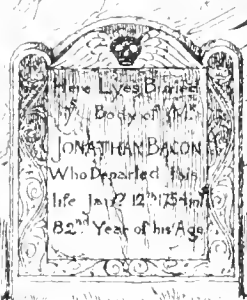 Here Lyes Buried
yͤ Body of Mͬ
JONATHAN BACON
Who Departed this
life Janʸ 12ᵗʰ 1754 in yᵉ
82ⁿᵈ Year of his Age